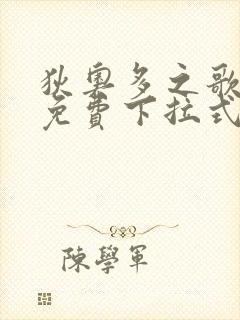 狄奧多之歌
免費下拉式
陳學軍